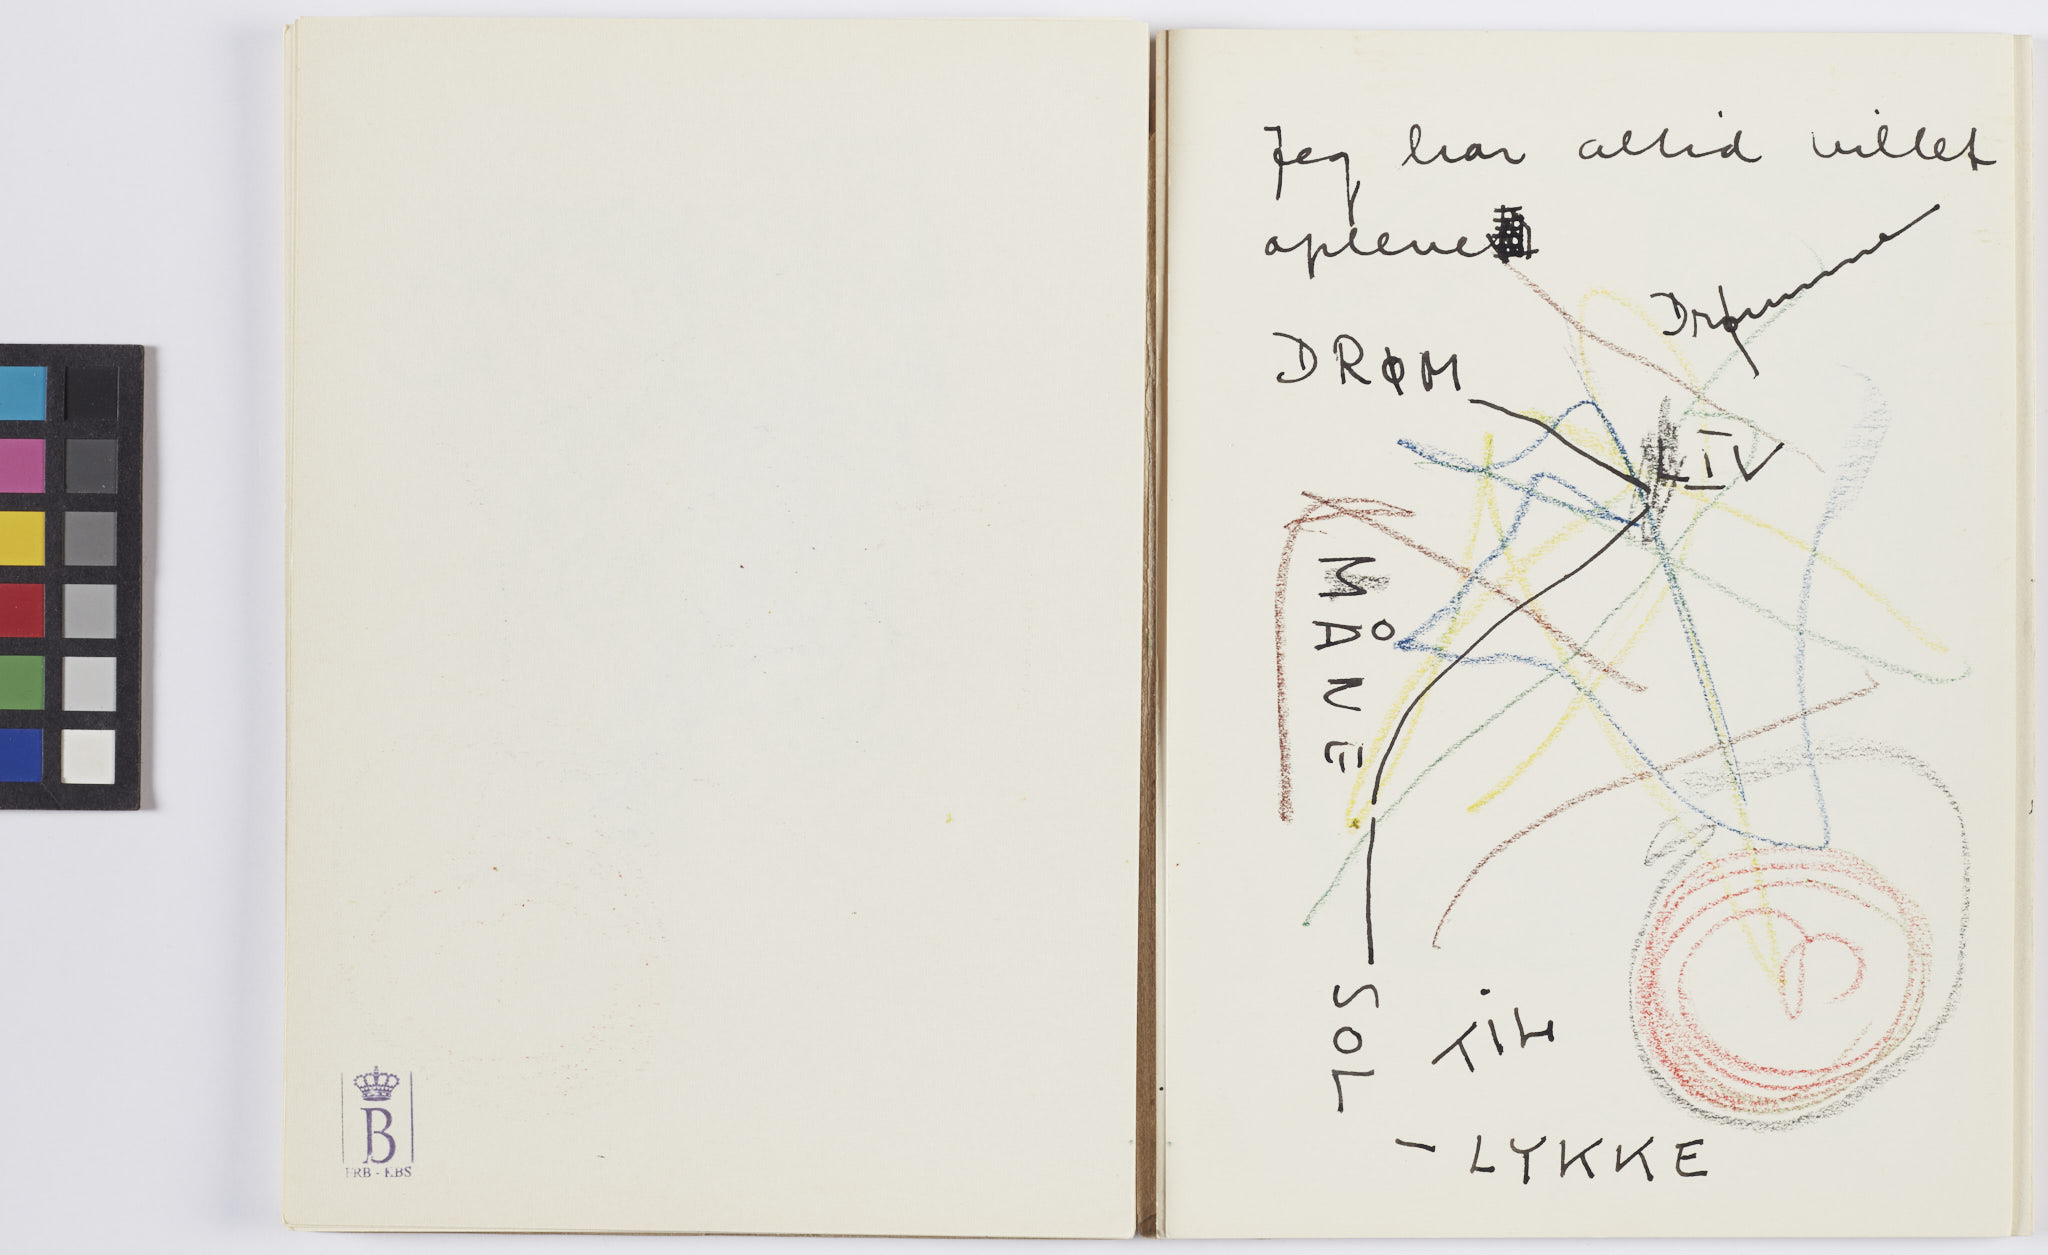 Jeg har altid villet
opleve
Drømme
DRØM
LIV
MÅNE
SOL
TIL
- LYKKE
B
FRB - KBS